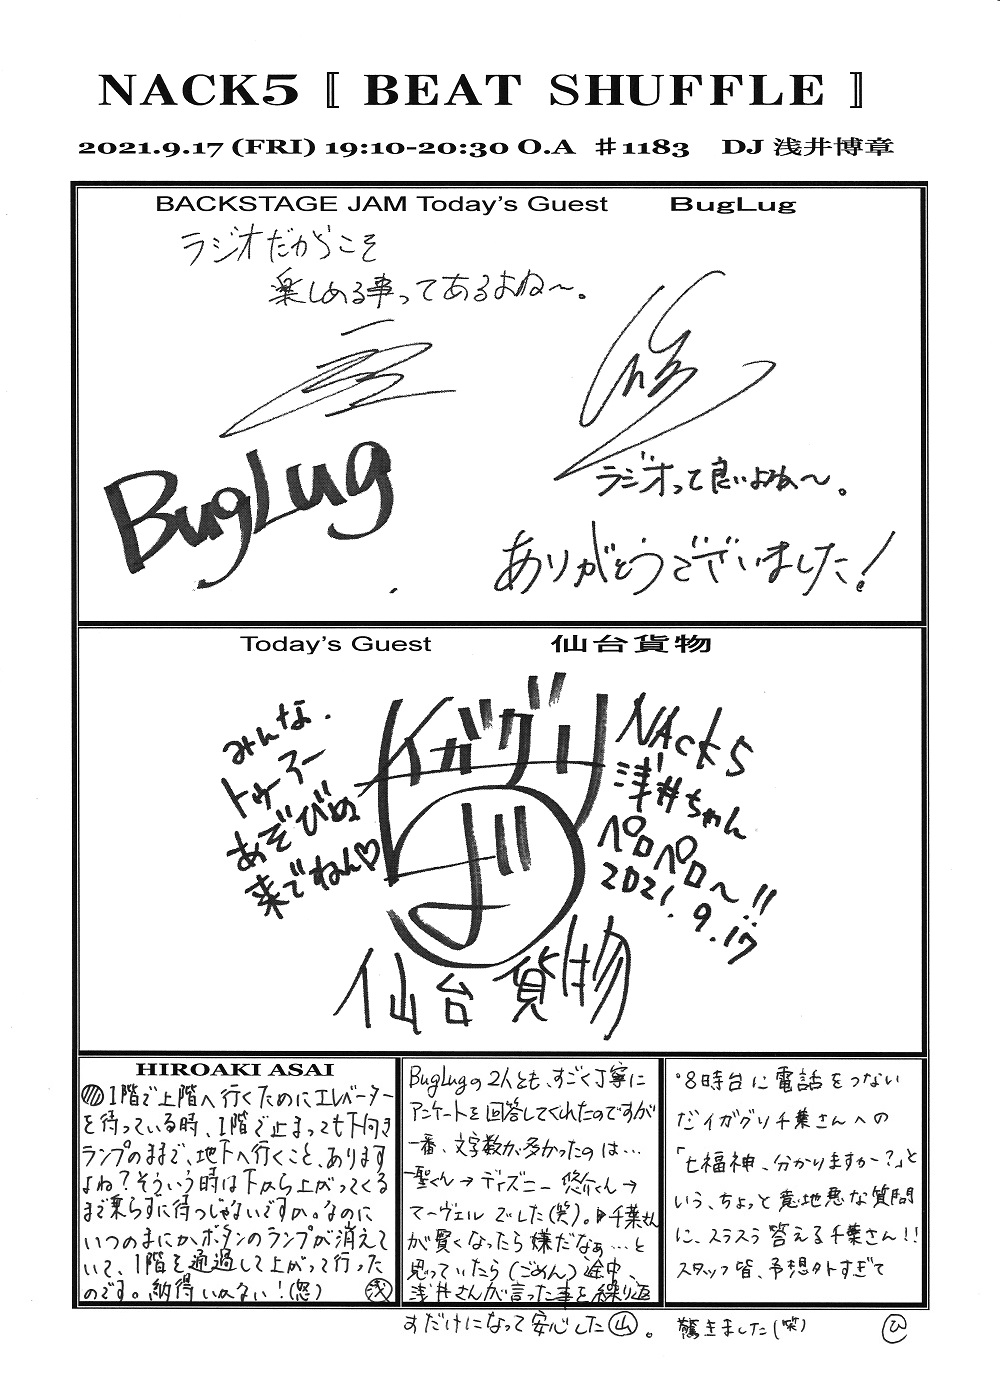 NACK5 〚 BEAT SHUFFLE 〛
2021.9.17 (FRI) 19:10-20:30 O.A #1183 DJ 浅井博章
BACKSTAGE JAM Today's Guest BugLug
ラジオだからこそ
楽しめる事ってあるよね〜。
BugLug
ラジオって良いよね〜。
ありがとうございました!
Today's Guest 仙台貨物
みんな、
トゥーアー
あぞびぬ
来でねん♡
イガグリ
NACK5
浅井ちゃん
ペロペロ〜!!
2021.9.17
仙台貨物
HIROAKI ASAI
1階で上階へ行くためにエレベーター
を待っている時、1階で止まっても下向き
ランプのままで、地下へ行くこと、あります
よね?そういう時は下から上がってくる
まで乗らずに待つじゃないですか。なのに
いつのまにかボタンのランプが消えて
いて、1階を通過して上がって行った
のです。納得いかない!(怒) 浅
BugLugの2人とも、すごく丁寧に
アンケートを回答してくれたのですが
一番、文字数が多かったのは…
一聖くん→ディズニー 悠介くん→
マーヴェル でした(笑)。千葉さん
が賢くなったら嫌だなぁ…と
思っていたら(ごめん)途中、
浅井さんが言った事を繰り返
すだけになって安心した山。
8時台に電話をつない
だイガグリ千葉さんへの
「七福神、分かりますか?」と
いう、ちょっと意地悪な質問
に、スラスラ答える千葉さん!!
スタッフ皆、予想外すぎて
驚きました(笑) ひ